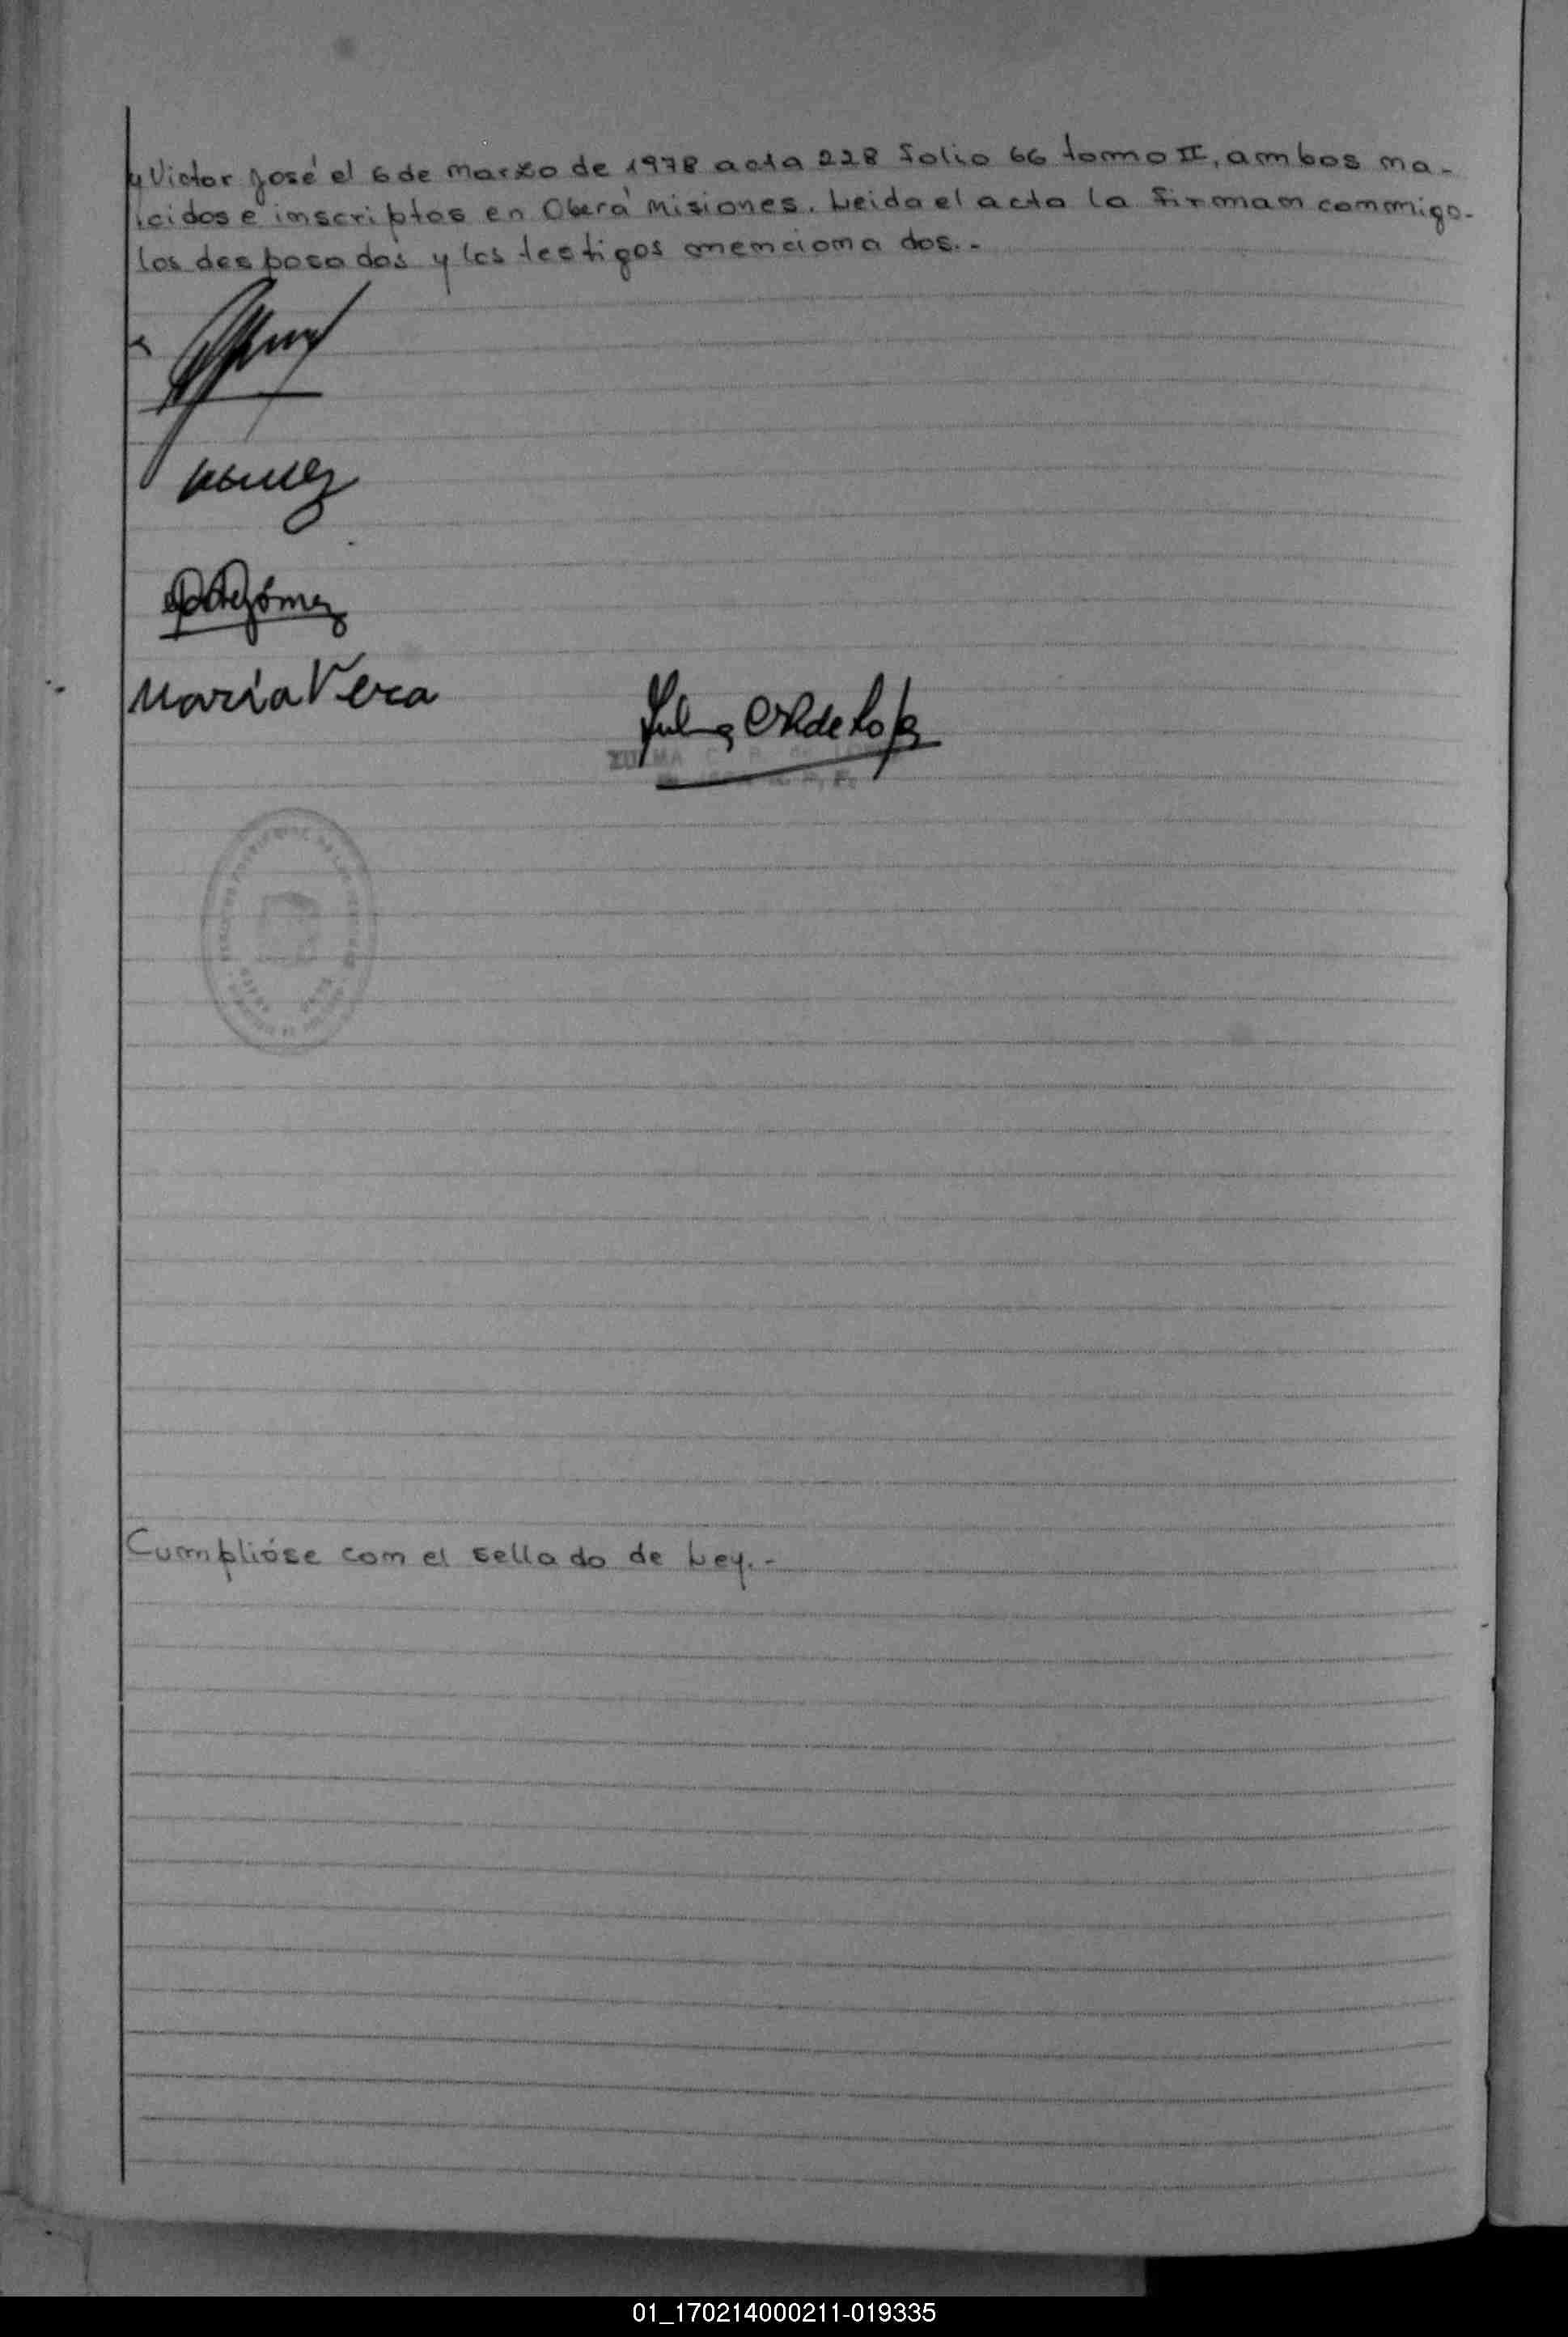 y Victor José el 6 de marzo de 1978 acta 228 folio 66 tomo II, ambos na-
cidos e inscriptos en Oberá Misiones. Leida el acta la firman conmigo.
los desposados y los testigos mencionados.-
Gómez
María Vera
Zulma C R de Lo
ZULMA C. R. de
Cumplióse con el sellado de Ley.-
01_170214000211-019335